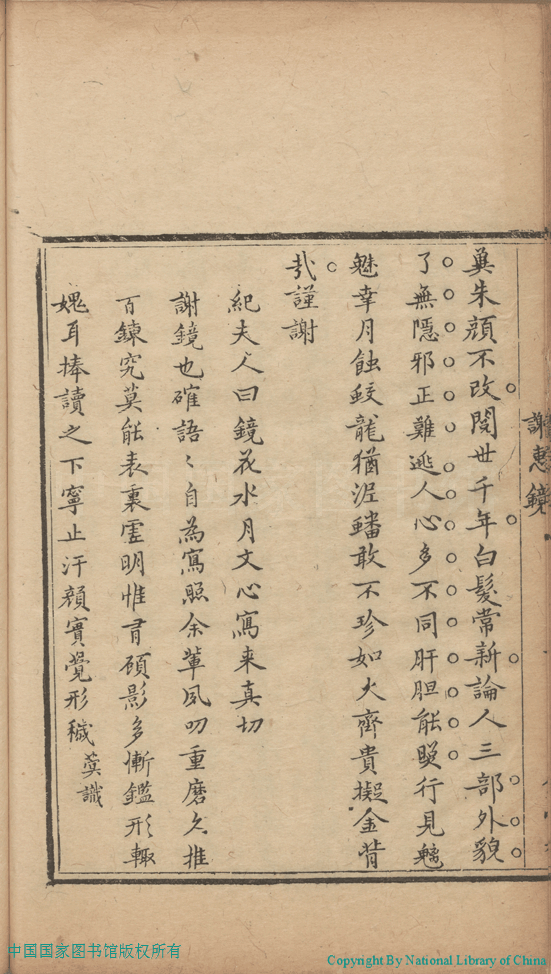 謝惠鏡
冀朱顔不改閲世千年白髮常新論人三部外貌
了無隱邪正難逃人心多不同肝胆能照行見魑
魅幸月蝕蛟龍猶泥蟠敢不珍如火齊貴擬金背
哉謹謝
紀夫人曰鏡花水月文心寫来真切
謝鏡也確語〻自為寫照余輩夙叨重磨久推
百鍊究莫能表裏虛明惟有顧影多慚鑑形輒
媿耳捧讀之下寧止汗顔實覺形穢 蓂識
中国国家图书馆版权所有
Copyright By National Library of China